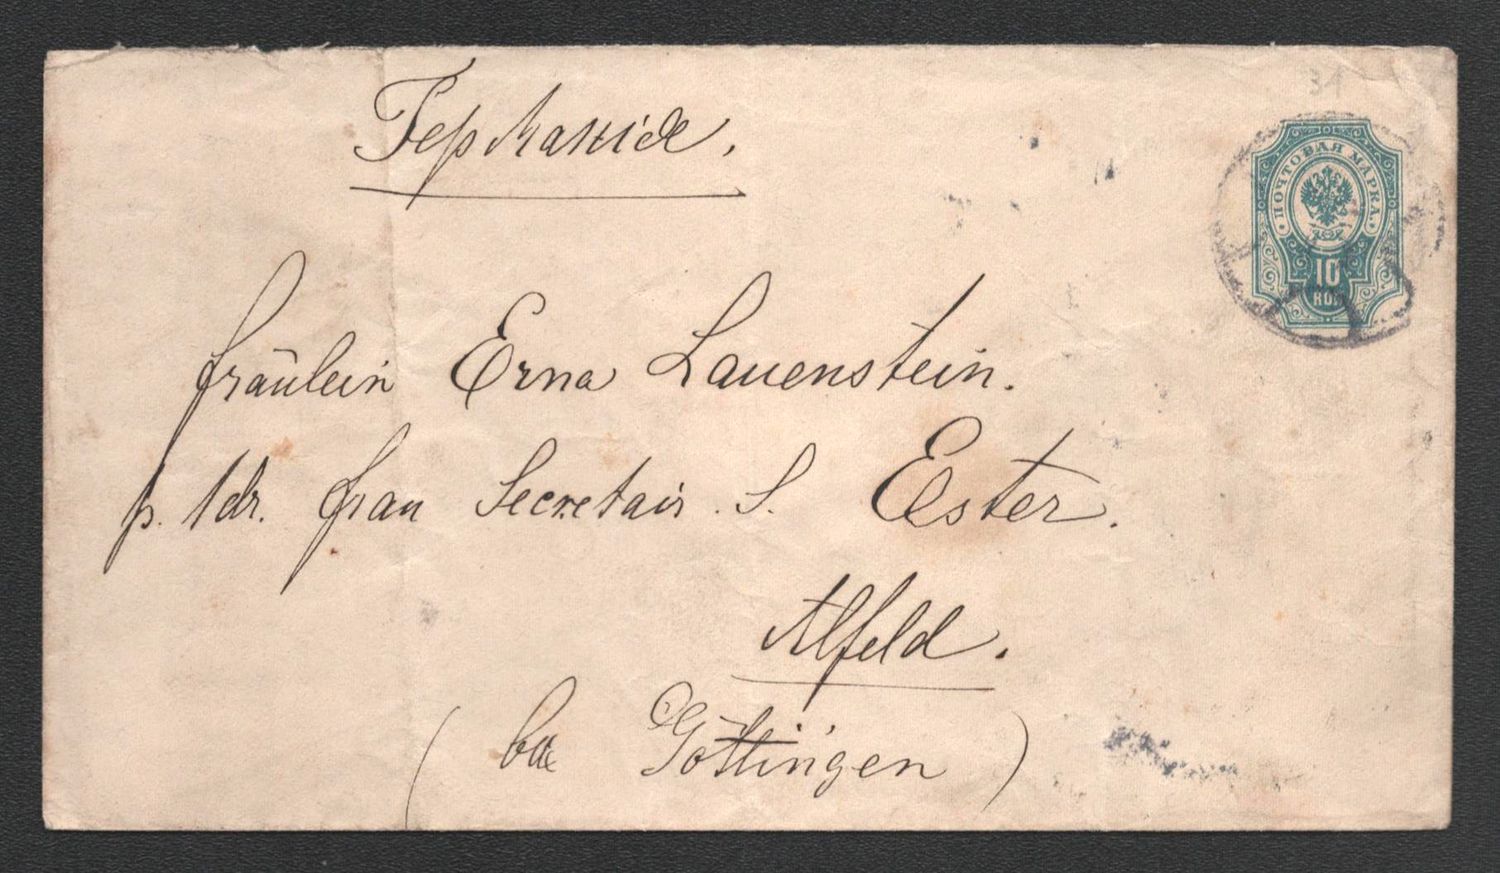 31
Германія.
ПОЧТОВАЯ МАРКА
10
КОП
fräulein Erna Lauenstein.
p. Adr. frau Secretair. S. Ester.
Alfeld.
( bei Göttingen )